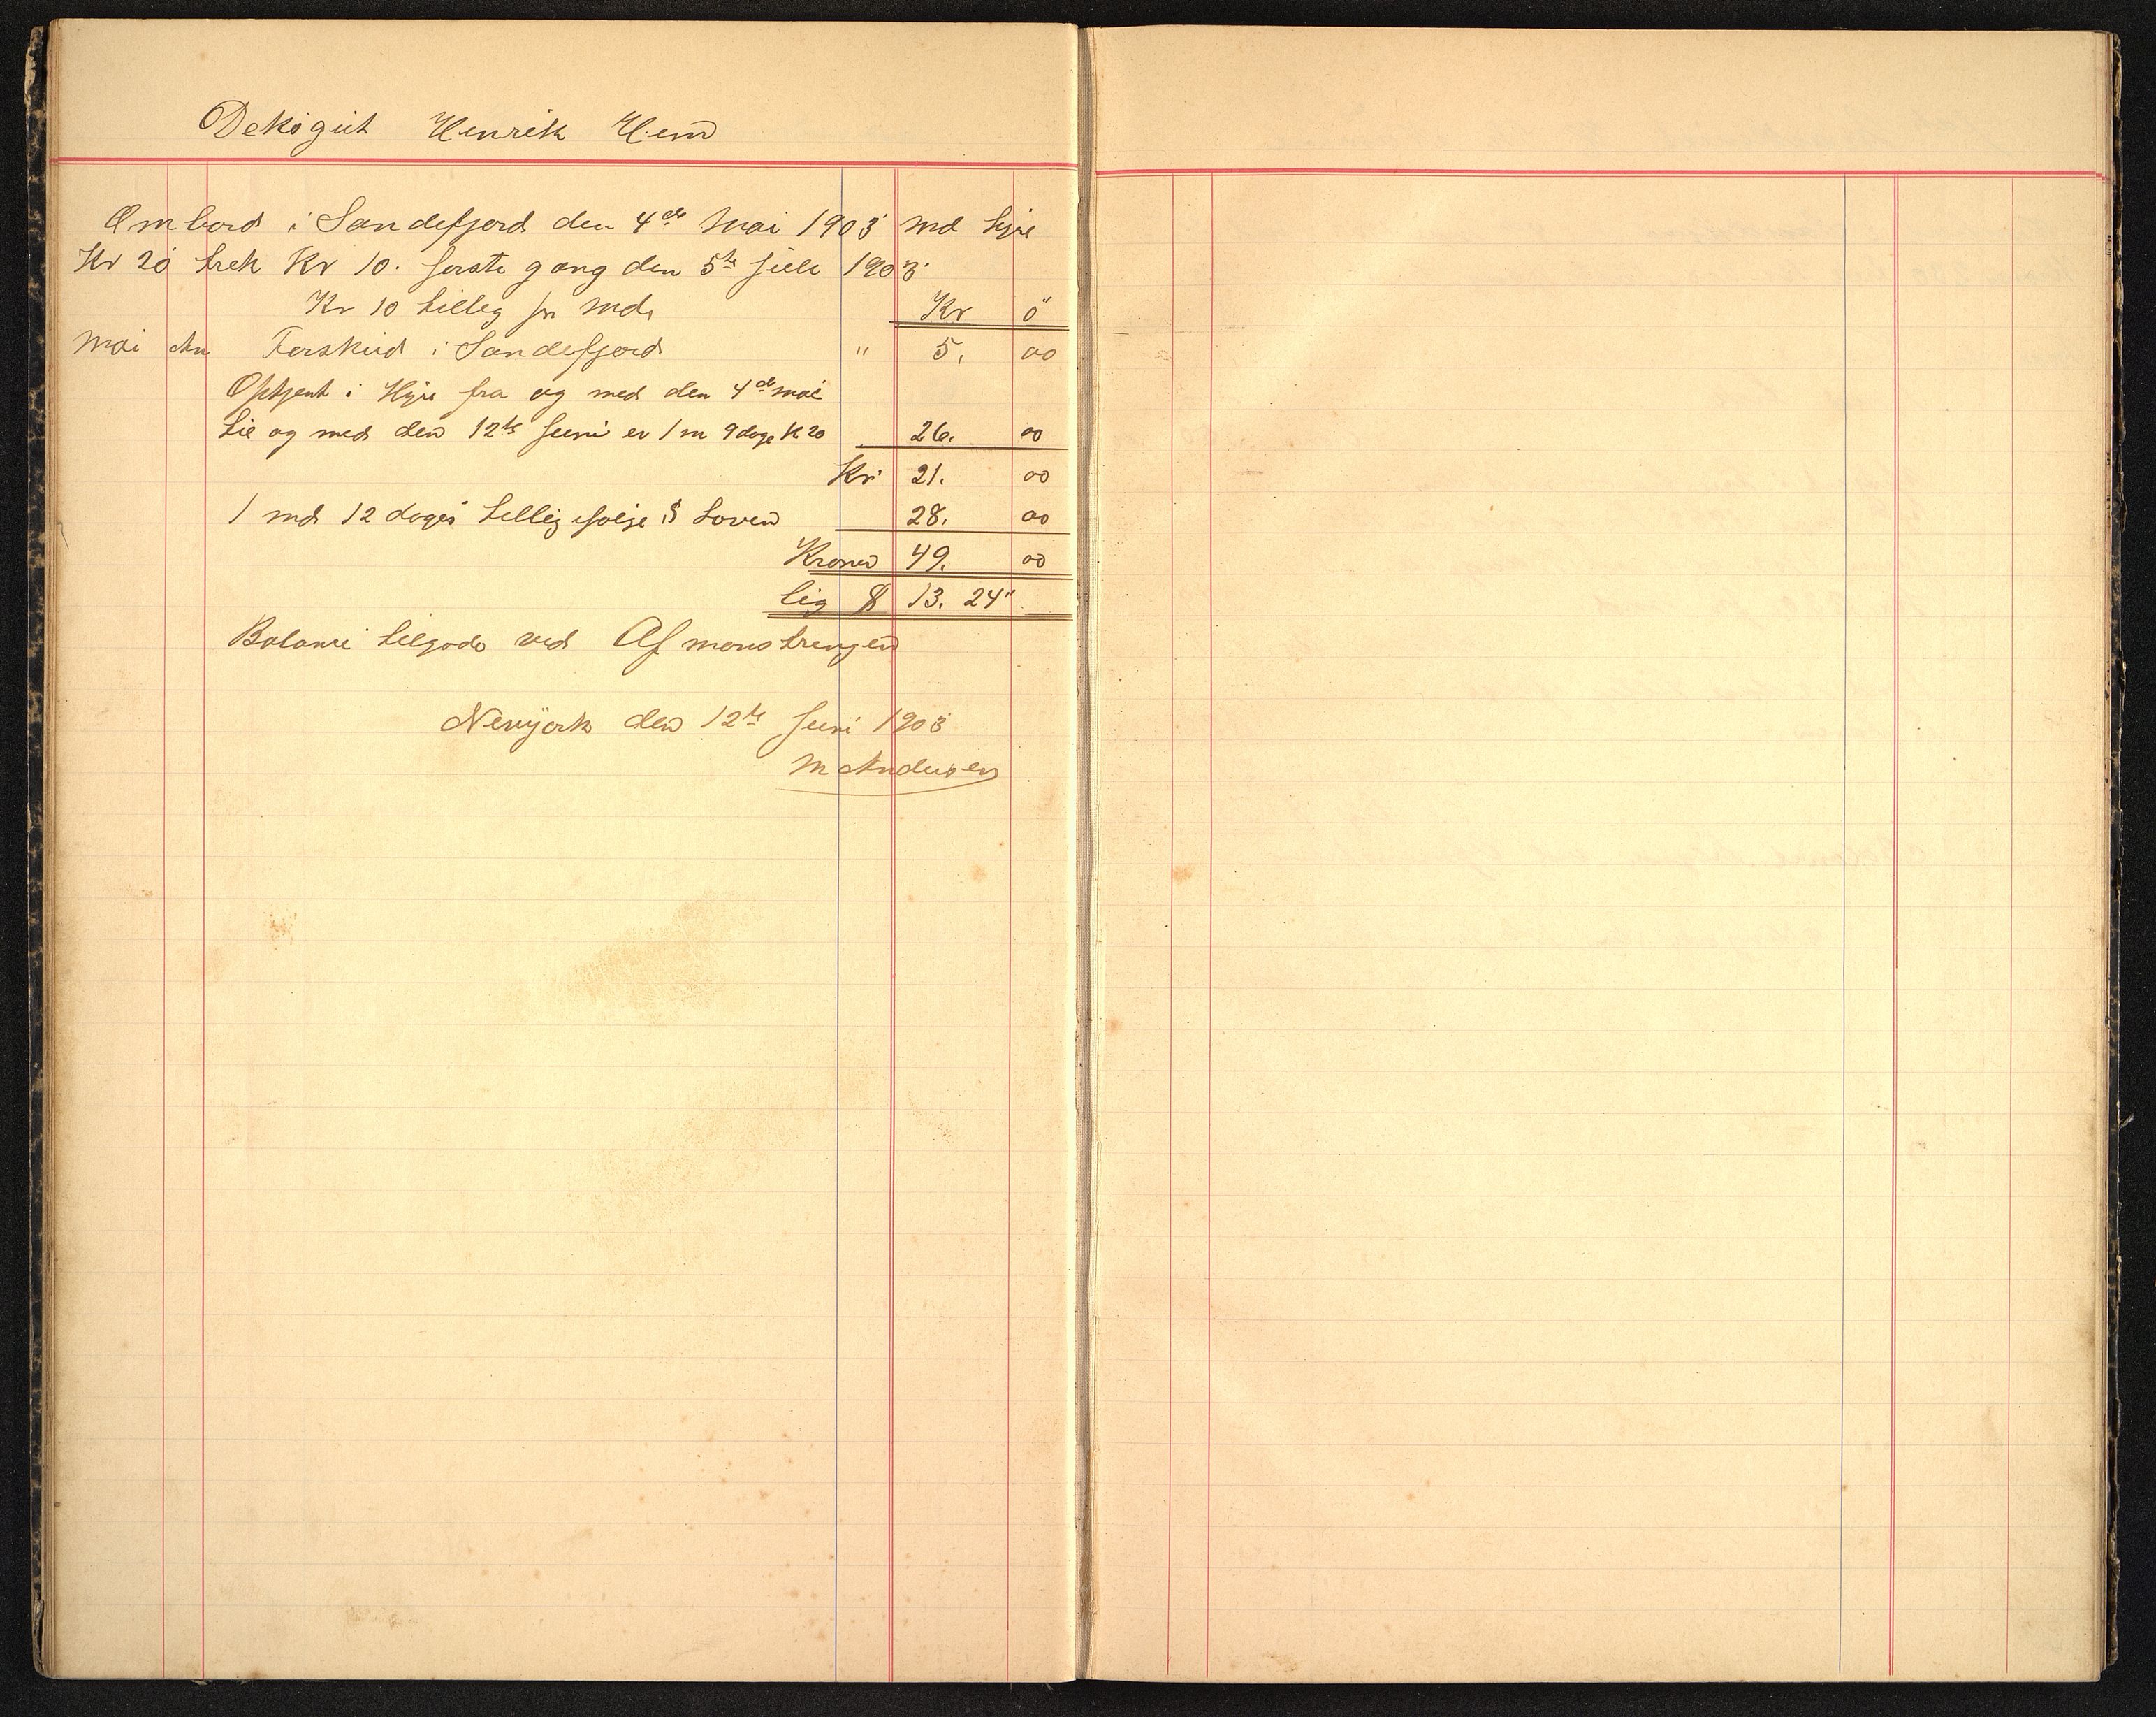 Deksgut Henrik Hem
Ombord i Sandefjord den 4de Mai 1903 md hyre
Kr 20 trek Kr 10. første gang den 5te Juli 1903
Kr 10 tilleg pr md. Kr ö
Mai An Forskud i Sandefjord " 5, 00
Optjent i Hyre fra og med den 4de mai
til og med den 12te Juni er 1 m 9 dage K 20 26. 00
Kr 21. 00
1 md 12 dages tilleg ifølge § Loven 28. 00
Kroner 49. 00
lig $ 13. 24"
Balance tilgode ved Afmønstringen
Newyork den 12te Juni 1903
M Andersen